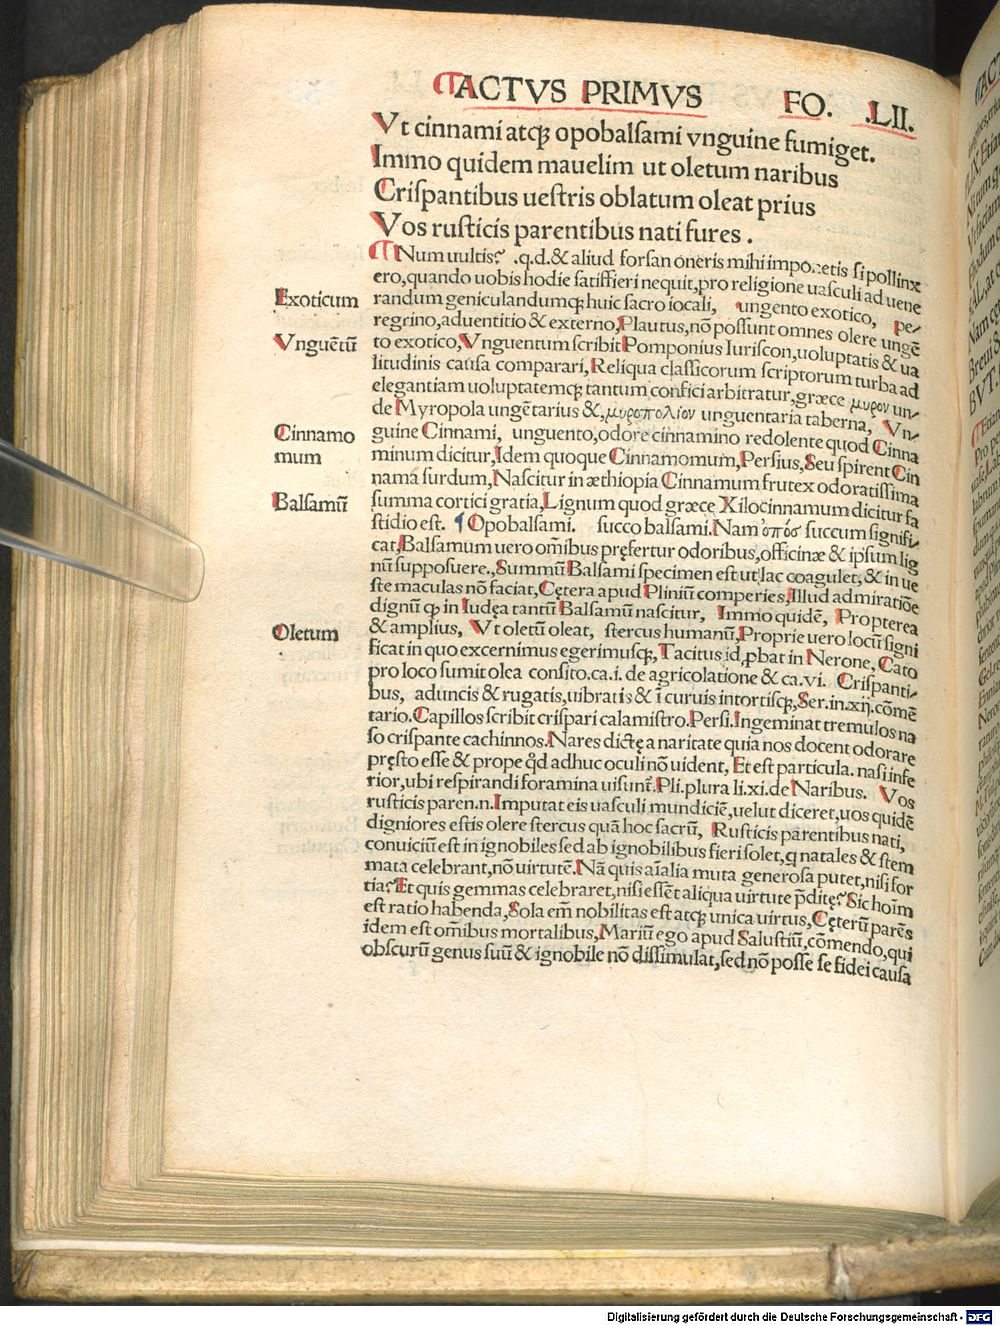 ACTVS PRIMVS FO. .LII.
Vt cinnami atqꝫ opobalsami vnguine fumiget.
Immo quidem mauelim ut oletum naribus
Crispantibus uestris oblatum oleat prius
Vos rusticis parentibus nati fures .
Num uultis? .q.d.& aliud forsan oneris mihi imponetis si pollinx
ero,quando uobis hodie satiffieri nequit,pro religione uasculi ad uene
Exoticum
randum geniculandumqꝫ huic sacro iocali, ungento exotico, pe-
regrino,aduentitio & externo,Plautus,nō possunt omnes olere ungē
Vnguētū
to exotico,Vnguentum scribit Pomponius Iuriscon,uoluptatis & ua
litudinis causa comparari,Reliqua classicorum scriptorum turba ad
elegantiam uoluptatemqꝫ tantum confici arbitratur,græce μυρον un-
de Myropola ungētarius &,μυροπολίον unguentaria taberna, Vn-
Cinnamo
mum
guine Cinnami, unguento,odore cinnamino redolente quod Cinna
minum dicitur,Idem quoque Cinnamomum,Persius,Seu spirent Cin
nama surdum,Nascitur in æthiopia Cinnamum frutex odoratissima
Balsamū
summa cortici gratia,Lignum quod græce Xilocinnamum dicitur fa
stidio est. ¶ Opobalsami. succo balsami.Nam ὀπός succum signifi-
cat,Balsamum uero om̄ibus prefertur odoribus,officinæ & ipsum lig
nū supposuere.,Summū Balsami specimen est ut lac coagulet, & in ue
ste maculas nō faciat,Cetera apud Pliniū comperies,Illud admiratiōe
dignū qꝫ in Iudea tantū Balsamū nascitur, Immo quidē, Propterea
Oletum
& amplius, Vt oletū oleat, stercus humanū,Proprie uero locū signi
ficat in quo excernimus egerimusqꝫ,Tacitus id,ꝓbat in Nerone, Cato
pro loco sumit olea consito.ca.i.de agricolatione & ca.vi. Crispanti-
bus, aduncis & rugatis,uibratis & ī curuis intortisqꝫ,Ser.in.xij.cōmē
tario.Capillos scribit crispari calamistro.Persi.Ingeminat tremulos na
so crispante cachinnos.Nares dictę a naritate quia nos docent odorare
pręsto esse & prope qd adhuc oculi nō uident, Et est particula.nasi infe
rior,ubi respirandi foramina uisunt̄.Pli.plura li.xi.de Naribus. Vos
rusticis paren.n.Imputat eis uasculi mundiciē,uelut diceret,uos quidē
digniores estis olere stercus quā hoc sacrū, Rusticis parentibus nati,
conuiciū est in ignobiles sed ab ignobilibus fieri solet,q natales & stem
mata celebrant,nō uirtutē.Nā quis aīalia muta generosa putet,nisi for
tia?Et quis gemmas celebraret,nisi essēt aliqua uirtute ꝓditę?Sic hoīm
est ratio habenda,Sola em̄ nobilitas est atqꝫ unica uirtus,Cęterū parēs
idem est om̄ibus mortalibus,Mariū ego apud Salustiū,cōmendo,qui
obscurū genus suū & ignobile nō dissimulat,sed nō posse se fidei causa
Digitalisierung gefördert durch die Deutsche Forschungsgemeinschaft - DFG